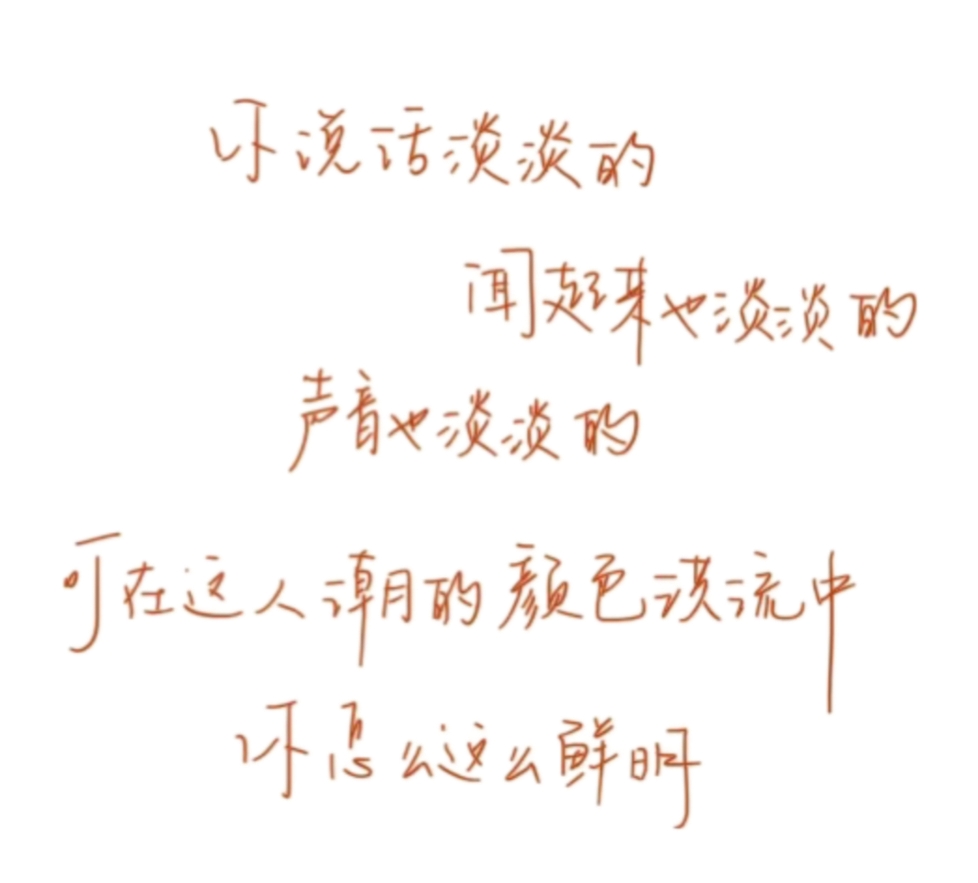 你说话淡淡的
闻起来也淡淡的
声音也淡淡的
可在这人潮的颜色洪流中
你怎么这么鲜明